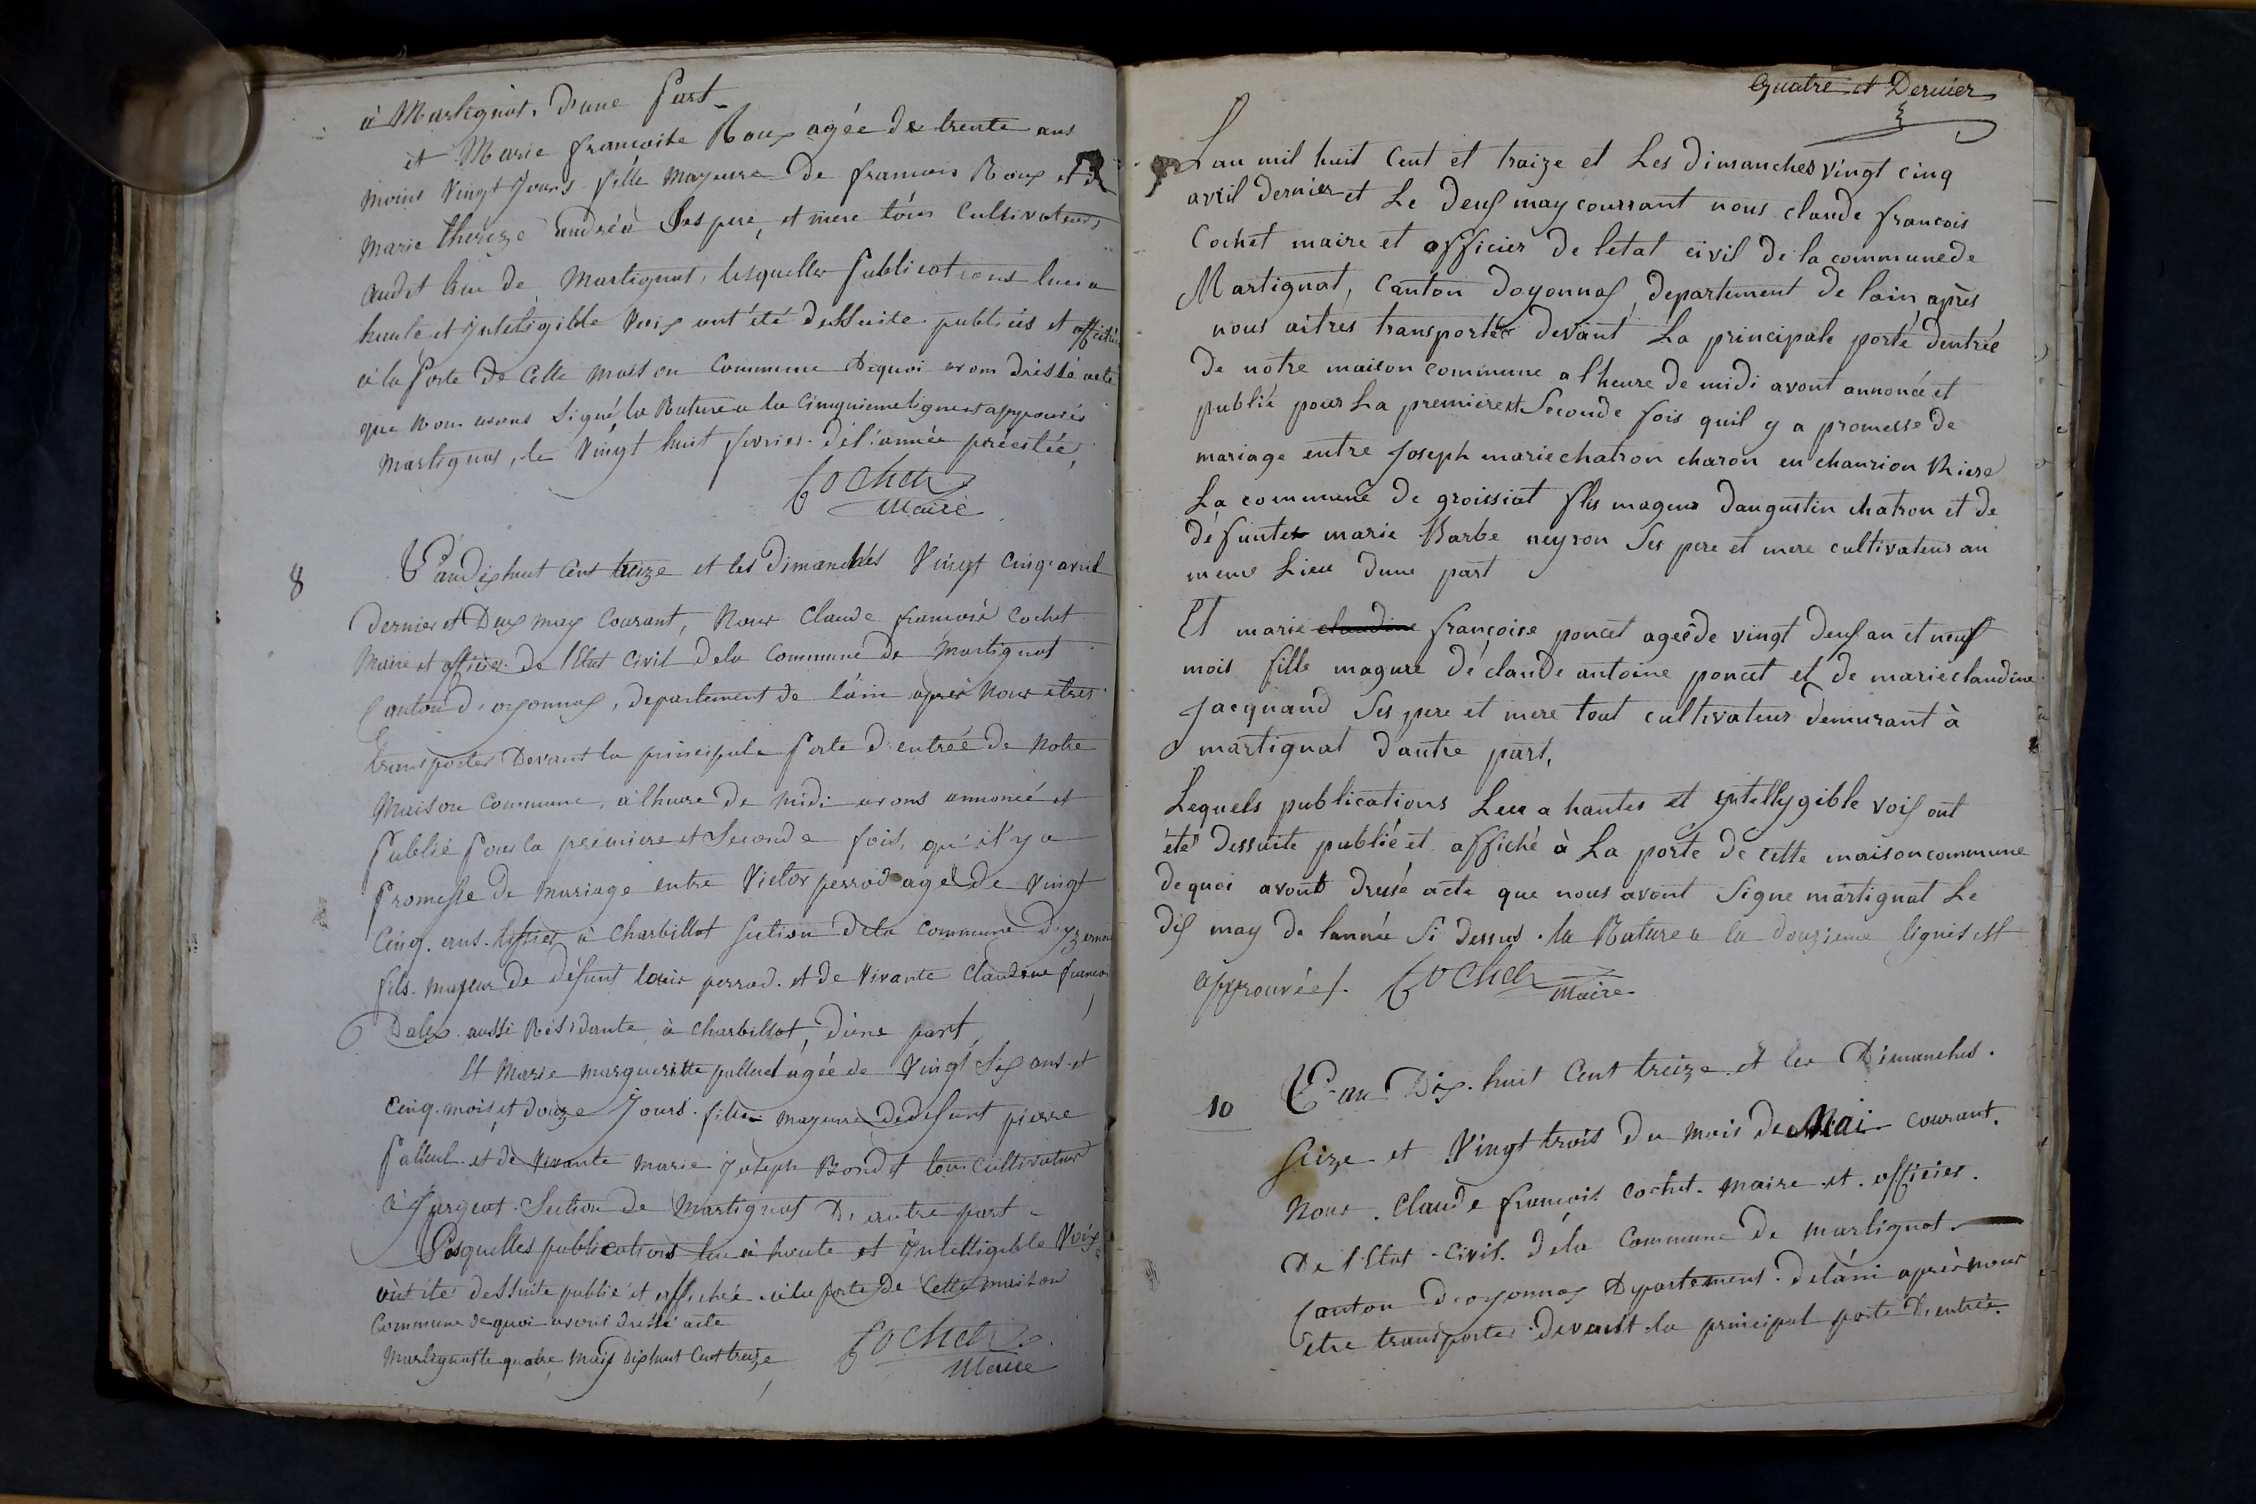 à Martignat, d'une Part
et Marie françoise Roux agée de trente ans
moins Vingt Jours fille Mayeure de francois Roux et de
Marie thereze andréa Ses pere, et mere tous Cultivateurs
audit lieu de Martignat, lesquelles Publications lues a
haute et Inteligible Voix ont été dessuite publiés et affichés
a la Porte de Cette maison Commune Dequoi avons dréssé acte
que Nous avons Signé la Rature a la Cinquieme ligne approuvée
Martignat, le Vingt huit fevrier de l'année précitée,
Cochet
Maire
8
L'an dix huit cent treize et les Dimanches Vingt Cinq avril
dernier et Deux may Courant, Nous Claude francois Cochet
Maire et officier de l'Etat Civil dela Commune de Martignat
Canton d'oyonnax, departement de l'ain aprés Nous etres
transporter Devant la principale Porte d'entrée de Notre
Maison Commune, a lheure de Midi avons annoncé et
Publié Pour la premiere et Seconde fois, qu'il y a
Promesse de Mariage entre Victor perrod agé de Vingt
Cinq ans à Charbillat Section dela Commune d'Izernore
fils majeur de défunt louis perrod et de Vivante Claudine francoise
Dalex aussi Résidante à Charbillat, d'une part,
Et Marie margueritte palluel agée de Vingt Six ans et
Cinq mois et douze Jours fille mayeure de defunt pierre
Palluel et de Vivante Marie Joseph Bondet tous Cultivateurs
à Jargeat Section de Martignat D'autre part
Lesquelles publications lue à haute et Intelligible Voix
ont été dessuite publié et affichée a la porte de Cette maison
Commune dequoi avons dressé acte
Martignat le quatre May dix huit Cent treize
Cochet
Maire
Quatre et Dernier
Lan mil huit Cent et traize et Les dimanches vingt cinq
avril dernier et Le deux may courrant nous claude francois
Cochet maire et officier de letat civil de la commune de
Martignat, Canton doyonnax, departement de lain après
nous aitres transporter devant La principale porte dentréé
de notre maison commune a l'heure de midi avont annoncé et
publié pour La premiere et Seconde fois quil y a promesse de
mariage entre Joseph marie chatron charon en
La commune de groissiat fils mageur daugustin chatron et de
défunte marie Barbe neyron Ses pere et mere cultivateur au
meme Lieu dune part
Et marie claudine françoise poncet agée de vingt deux an et neuf
mois fille magure de claude antoine poncet et de marie claudine
Jacquand Ses pere et mere tout cultivateur demurant à
martignat dautre part,
Lequels publications Lue a hautes et yntellygible voix ont
été dessuite publié et affiché à La porte de cette maison commune
de quoi avont drésé acte que nous avont Signe martignat Le
dix may de lannée Si dessus . la Rature a la douzieme lignes est
approuvées . Cochet
Maire
10
L'an Dix huit Cent treize et les Dimanches
Seize et Vingt trois du mois de Mai courant
Nous Claude françois Cochet Maire et officier
De l'Etat Civil dela Commune de Martignat
Canton D'oyonnax Departement delain après nous
etre transporter devant la principal porte D'entrée